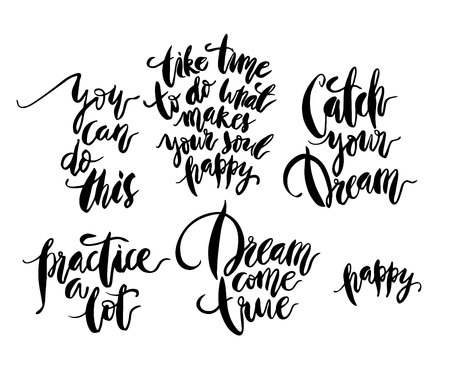 You
can
do
this
take time
to do what
makes
your soul
happy
Catch
your
Dream
practice
a
lot
Dream
come
true
happy